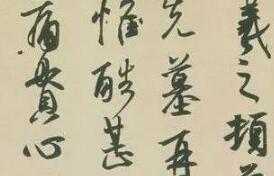 羲之頓
先墓再
惟酷甚
痛貫心